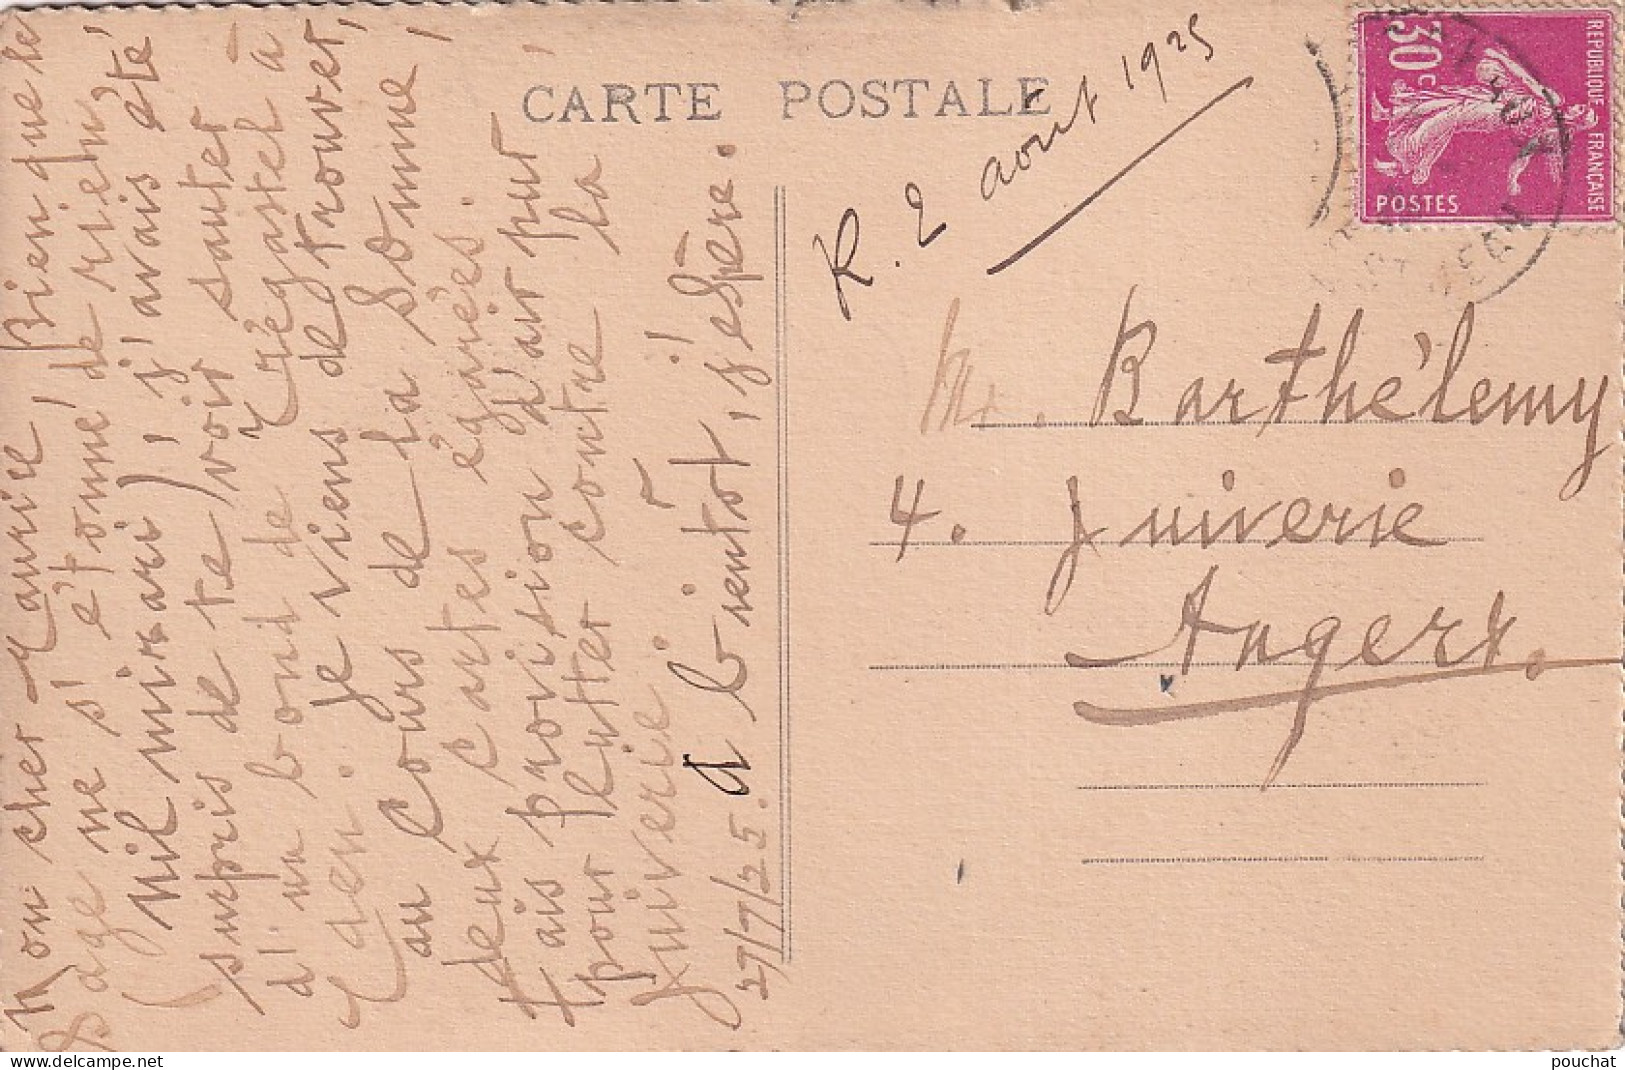 Mon cher Maurice, Bien que le
sage ne s'étonne de rien,
(nil mirari), j'avais été
surpris de te voir sauter
d'un bond de Trégastel à
Caen. Je viens de trouver,
au cours de la Somme,
deux cartes égarées.
Fais provision d'air pur
pour lutter contre la
Juiverie!
27/7/25. A bientôt, j'espère.
CARTE POSTALE
R. 2 août 1925
30c
REPUBLIQUE FRANÇAISE
POSTES
Mr. Barthélemy
4. Juiverie
Angers.
pouchat